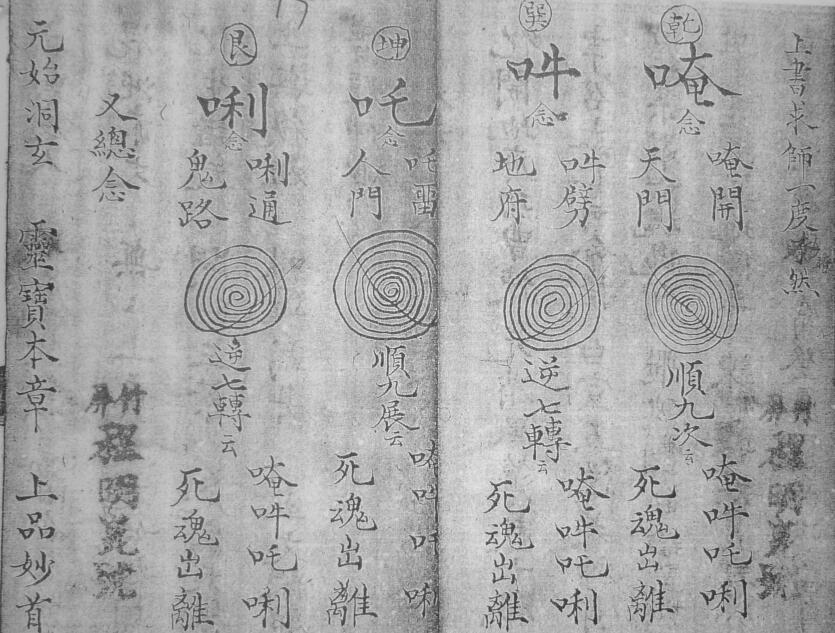 上書求師一度然
乾
唵
念
唵開
天門
順九次云
唵吽吒唎
死魂出離
巽
吽
念
吽劈
地府
逆七轉云
唵吽吒唎
死魂出離
坤
吒
念
吒雷
人門
順九展云
唵吽吒唎
死魂出離
艮
唎
念
唎通
鬼路
逆七轉云
唵吽吒唎
死魂出離
又總念
竹
程明
元始洞玄 靈寶本章 上品妙首